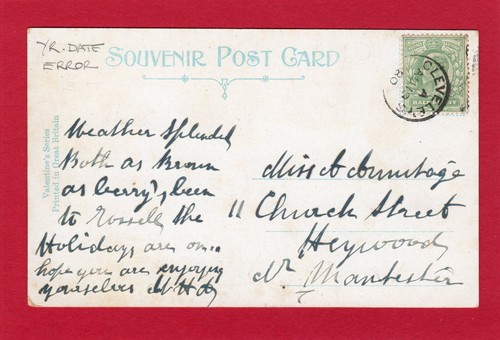 YR. DATE
ERROR
SOUVENIR POST CARD
CLEVELEYS
Valentine's Series
Printed in Great Britain
Weather splendid
Both as Brown
as berry's been
to Rossall the
Holidays are on..
hope you are enjoying
yourselves
Miss Armitage
11 Church Street
Heywood
Nr. Manchester